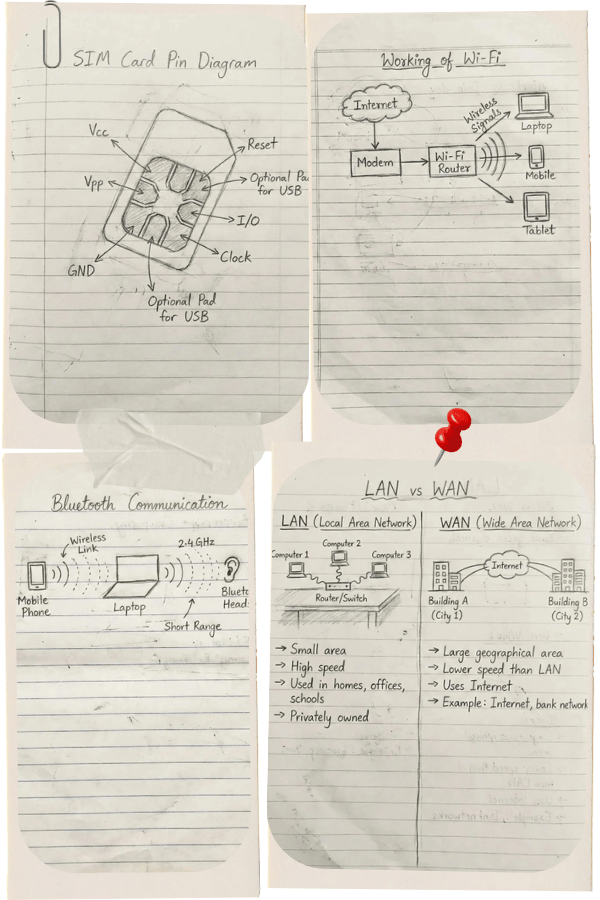 SIM Card Pin Diagram
Vcc
Reset
Vpp
Optional Pad
for USB
I/O
Clock
GND
Optional Pad
for USB
Working of Wi-Fi
Internet
Wireless
Signals
Laptop
Modem
Wi-Fi
Router
Mobile
Tablet
Bluetooth Communication
Wireless
Link
2.4 GHz
Mobile
Phone
Laptop
Bluet
Head
Short Range
LAN vs WAN
LAN (Local Area Network)
Computer 1
Computer 2
Computer 3
Router/Switch
→ Small area
→ High speed
→ Used in homes, offices,
schools
→ Privately owned
WAN (Wide Area Network)
Internet
Building A
(City 1)
Building B
(City 2)
→ Large geographical area
→ Lower speed than LAN
→ Uses Internet
→ Example: Internet, bank network